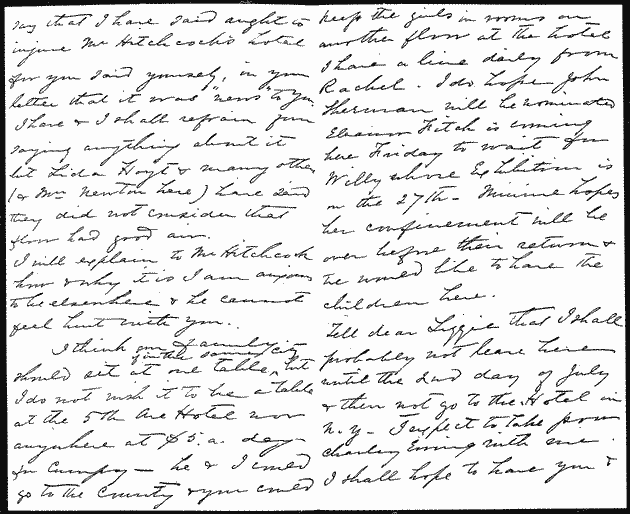 say that I have said aught to
injure Mr Hitchcock's hotel
for you said yourself, in your
letter that it was "news to you
I have & I shall refrain from
saying anything about it
but Lida Hoyt & many others
(& Mrs Newton here) have said
they did not consider that
floor had good air.
I will explain to Mr Hitchcock
how & why it is I am anxious
to be elsewhere & he cannot
feel hurt with you.
I think our family
in the same city
should sit at one table, but
I do not wish it to be a table
at the 5th Ave Hotel nor
anywhere at $5. a. day-
for Cumpy - he & I could
go to the Country & you could
keep the girls in rooms on
another floor at the hotel
I have a line daily from
Rachel. I do hope John
Sherman will be nominated
Eleanor Fitch is coming
here Friday to wait for
Willy whose Exhibition is
on the 27th - Minnie hopes
her confinement will be
over before their return &
he would like to have the
children here.
Tell dear Lizzie that I shall
probably not leave here
until the 2nd day of July
& then not go to the Hotel in
N. Y- I expect to take poor
Charley Ewing with me.
I shall hope to have you &